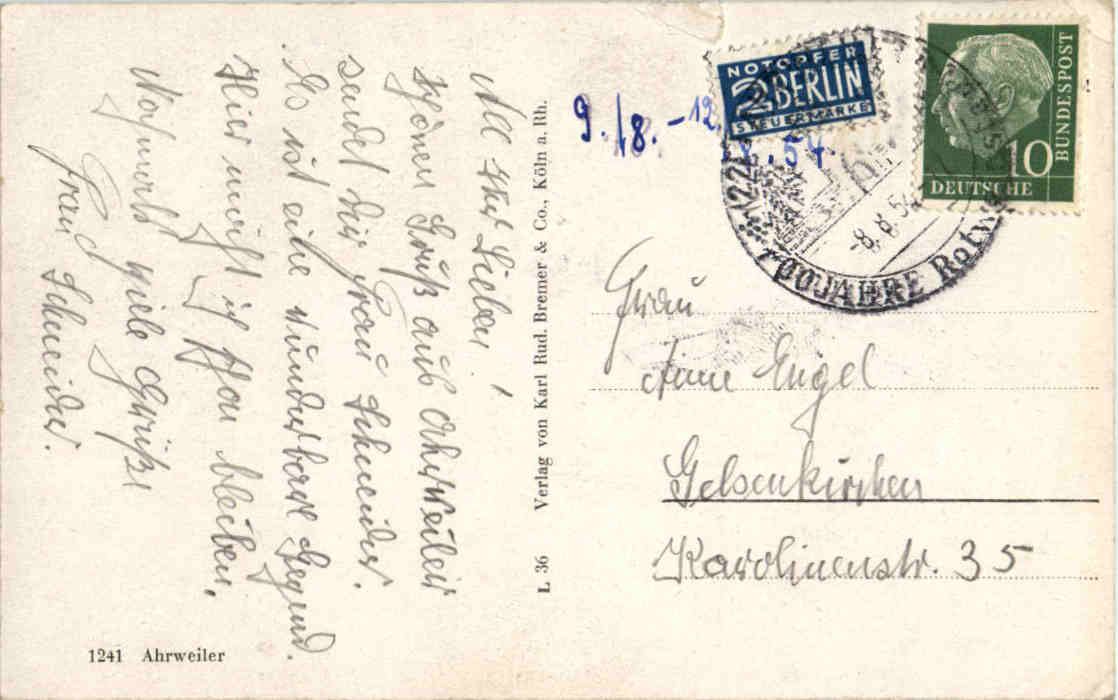 All Ihr Lieben!
schönen Gruß aus Ahrweiler
sendet Dir Frau Schneider.
Es ist eine wunderbare Gegend.
Hier möcht ich schon bleiben.
Nochmals viele Grüße
Frau Schneider.
1241 Ahrweiler
L 36 Verlag von Karl Rud. Bremer & Co., Köln a. Rh.
9./8. - 12.
8. 54.
NOTOPFER
2 BERLIN
STEUERMARKE
DEUTSCHE
BUNDESPOST
10
(22
-8.8.54
700 JAHRE Rotw
Frau
Anne Engel
Gelsenkirchen
Karolinenstr. 35